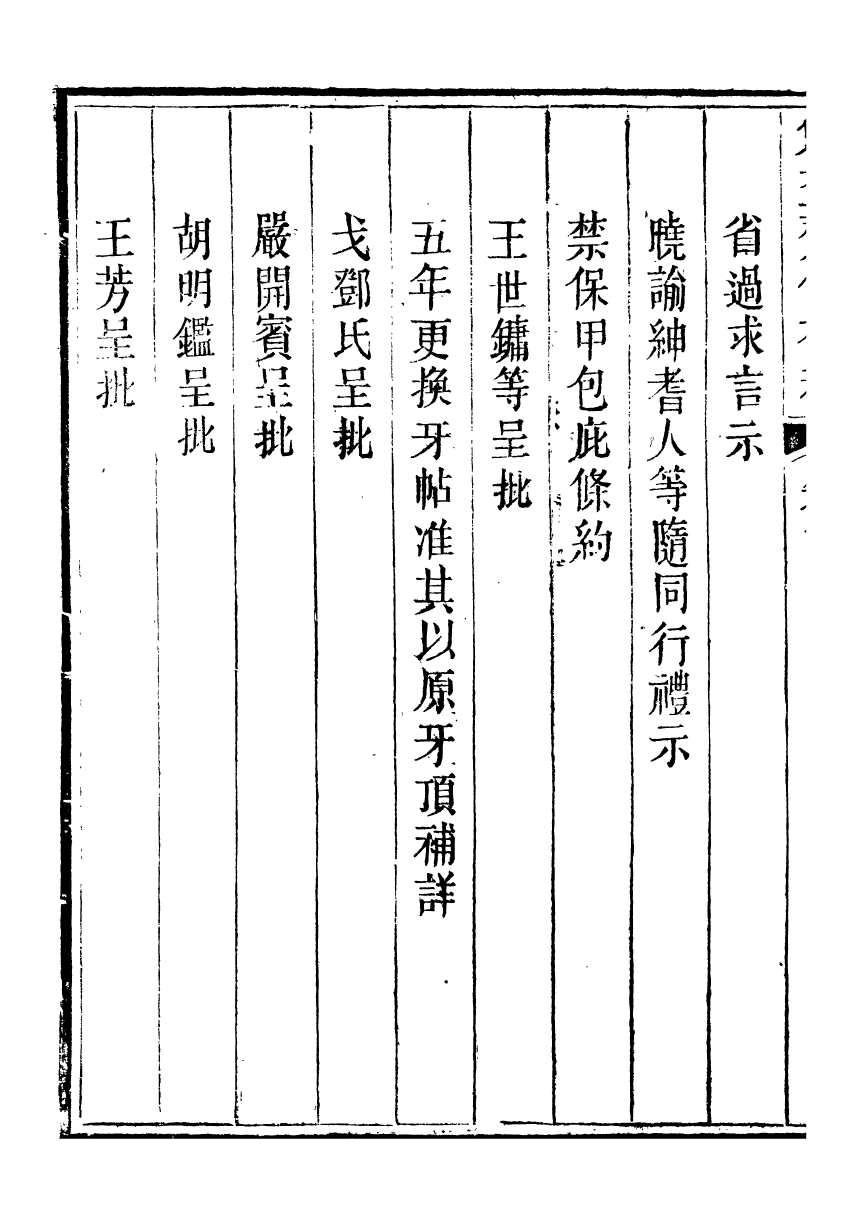 省過求言示
曉諭紳耆人等隨同行禮示
禁保甲包庇條約
王世鏞等呈批
五年更換牙帖准其以原牙頂補詳
戈鄧氏呈批
嚴開賓呈批
胡明鑑呈批
王芳呈批